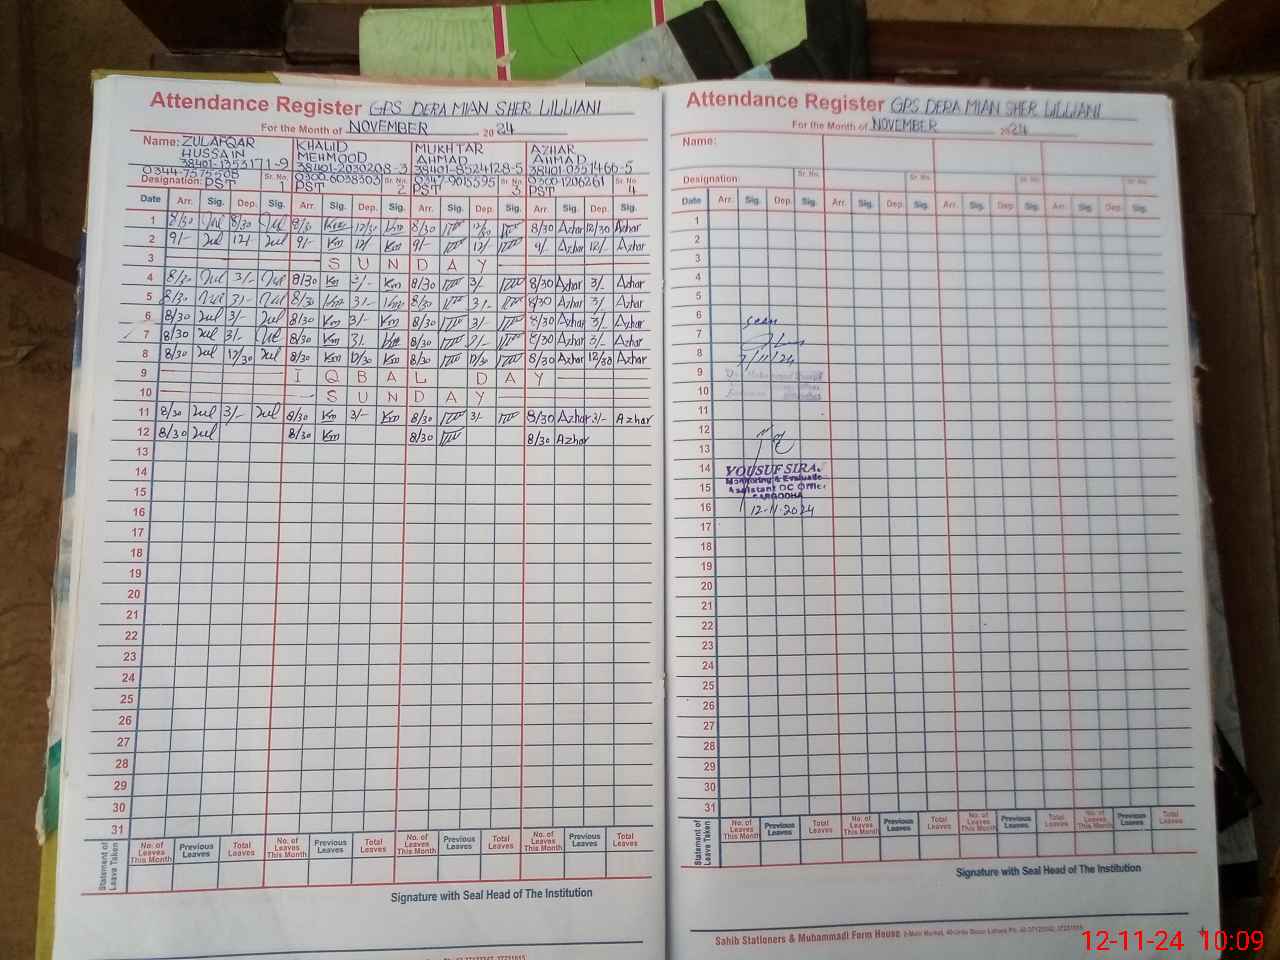 Attendance Register GPS DERA MIAN SHER LILLIANI
For the Month of NOVEMBER 2024
Name: ZULAFQAR HUSSAIN 38401-1353171-9 0344-7575508
KHALID MEHMOOD 38401-2030208-3 0300-6038303
MUKHTAR AHMAD 38401-8524128-5
AZHAR AHMAD 38401-0351466-5 0300-1206261
Designation: PST Sr. No. 1 PST Sr. No. 2 PST Sr. No. 3 PST Sr. No. 4
Date Arr. Sig. Dep. Sig. Arr. Sig. Dep. Sig. Arr. Sig. Dep. Sig. Arr. Sig. Dep. Sig.
1 8/30 8/30 8/30 Km 12/30 Km 8/30 12/30 8/30 Azhar 12/30 Azhar
2 9/- 12/- 9/- Km 12/ Km 9/- 12/- 9/- Azhar 12/- Azhar
3 SUNDAY
4 8/30 3/- 8/30 Km 3/- Km 8/30 3/- 8/30 Azhar 3/- Azhar
5 8/30 3/- 8/30 Km 3/- Km 8/30 3/- 8/30 Azhar 3/- Azhar
6 8/30 3/- 8/30 Km 3/- Km 8/30 3/- 8/30 Azhar 3/- Azhar
7 8/30 3/- 8/30 Km 3/- Km 8/30 3/- 8/30 Azhar 3/- Azhar
8 8/30 12/30 8/30 Km 12/30 Km 8/30 12/30 8/30 Azhar 12/30 Azhar
9 IQBAL DAY
10 SUNDAY
11 8/30 3/- 8/30 Km 3/- Km 8/30 3/- 8/30 Azhar 3/- Azhar
12 8/30 8/30 Km 8/30 8/30 Azhar
13
14
15
16
17
18
19
20
21
22
23
24
25
26
27
28
29
30
31
Statement of Leave Taken No. of Leaves This Month Previous Leaves Total Leaves No. of Leaves This Month Previous Leaves Total Leaves No. of Leaves This Month Previous Leaves Total Leaves No. of Leaves This Month Previous Leaves Total Leaves
Signature with Seal Head of The Institution
Attendance Register GPS DERA MIAN SHER LILLIANI
For the Month of NOVEMBER 2024
Name:
Designation: Sr. No. Sr. No. Sr. No. Sr. No.
Date Arr. Sig. Dep. Sig. Arr. Sig. Dep. Sig. Arr. Sig. Dep. Sig. Arr. Sig. Dep. Sig.
1
2
3
4
5
6 seen
7
8 7/11/24
9
10
11
12
13
14 YOUSUF SIRA
Monitoring & Evaluatio
15 Assistant DC Office
SARGODHA
16 12-11-2024
17
18
19
20
21
22
23
24
25
26
27
28
29
30
31
Statement of Leave Taken No. of Leaves This Month Previous Leaves Total Leaves No. of Leaves This Month Previous Leaves Total Leaves No. of Leaves This Month Previous Leaves Total Leaves No. of Leaves This Month Previous Leaves Total Leaves
Signature with Seal Head of The Institution
Sahib Stationers & Muhammadi Form House
12-11-24 10:09